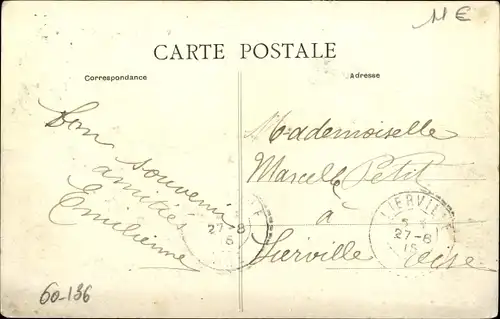 11 €
CARTE POSTALE
Correspondance
Adresse
Bon souvenir
amitiés
Emilienne
Mademoiselle
Marcelle Petit
à
Lierville Oise
27-8
LIERVILLE
27-8
60-136